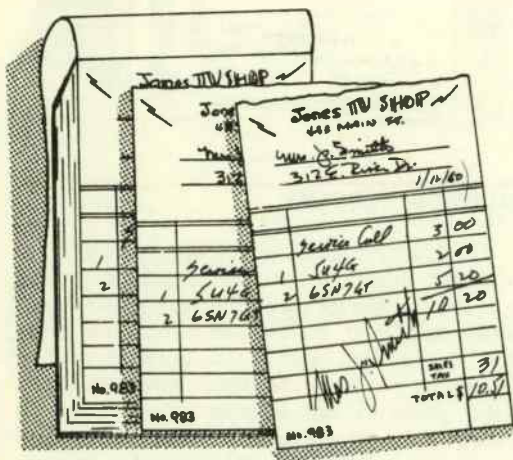 Jones TV SHOP
1
2
No. 983
Jones
Mrs.
312
Service
1 5U4G
2 6SN7GT
No. 983
Jones TV SHOP
MAIN ST.
Mrs. J. Smith
312 E. River Dr.
1/12/60
Service Call 3 00
1 5U4G 2 00
2 6SN7GT 5 20
10 20
Mrs. J. Smith
SALES TAX 31
TOTAL $ 10.51
No. 983